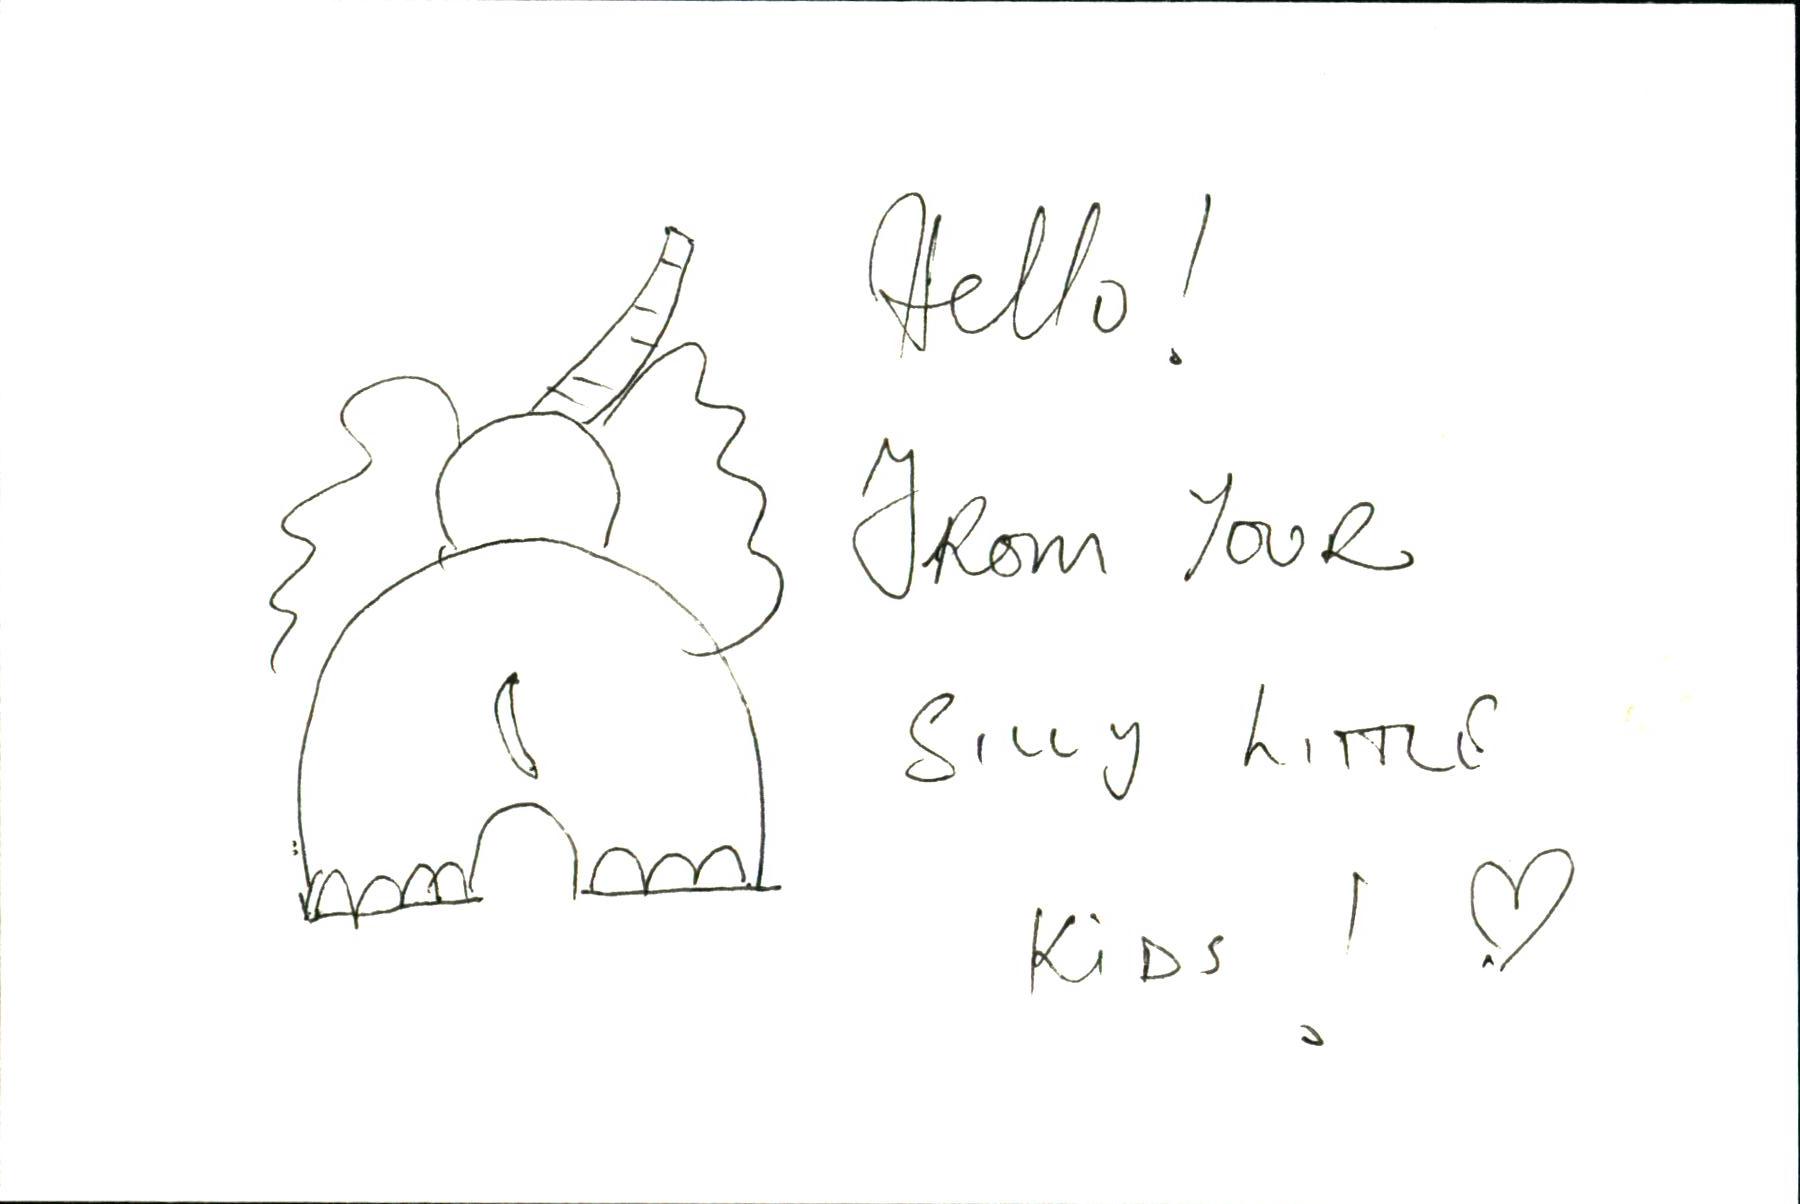 Hello!
FROM YOUR
SILLY LITTLE
KiDS!